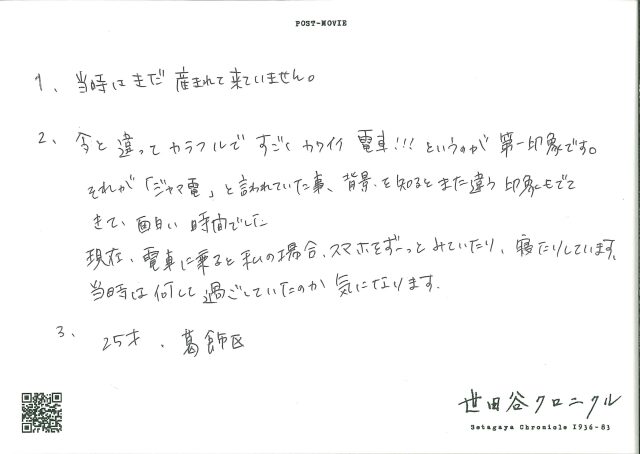 POST-MOVIE
1、当時はまだ産まれて来ていません。
2、今と違ってカラフルですごくカワイイ電車!!!というのが第一印象です。
それが「ジャマ電」と言われていた事、背景を知るとまた違う印象もでて
きて、面白い時間でした
現在、電車に乗ると私の場合、スマホをずーっとみていたり、寝たりしています。
当時は何して過ごしていたのか気になります。
3、25才、葛飾区
世田谷クロニクル
Setagaya Chronicle 1936-83